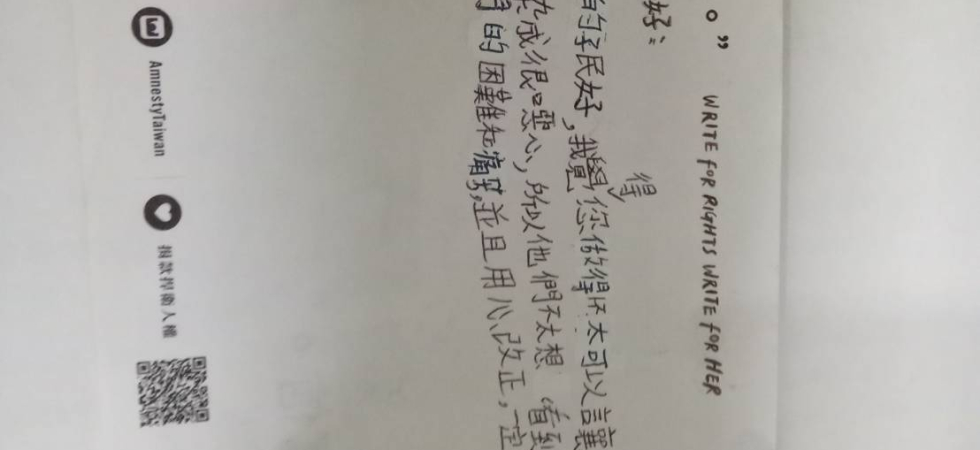 。” WRITE for RIGHTS WRITE for HER
好：
的子民好，我覺得您做得不太可以讓
成很噁心，所以他們不太想看到
的困難和痛苦，並且用心改正，一定
AmnestyTaiwan 捐款捍衛人權